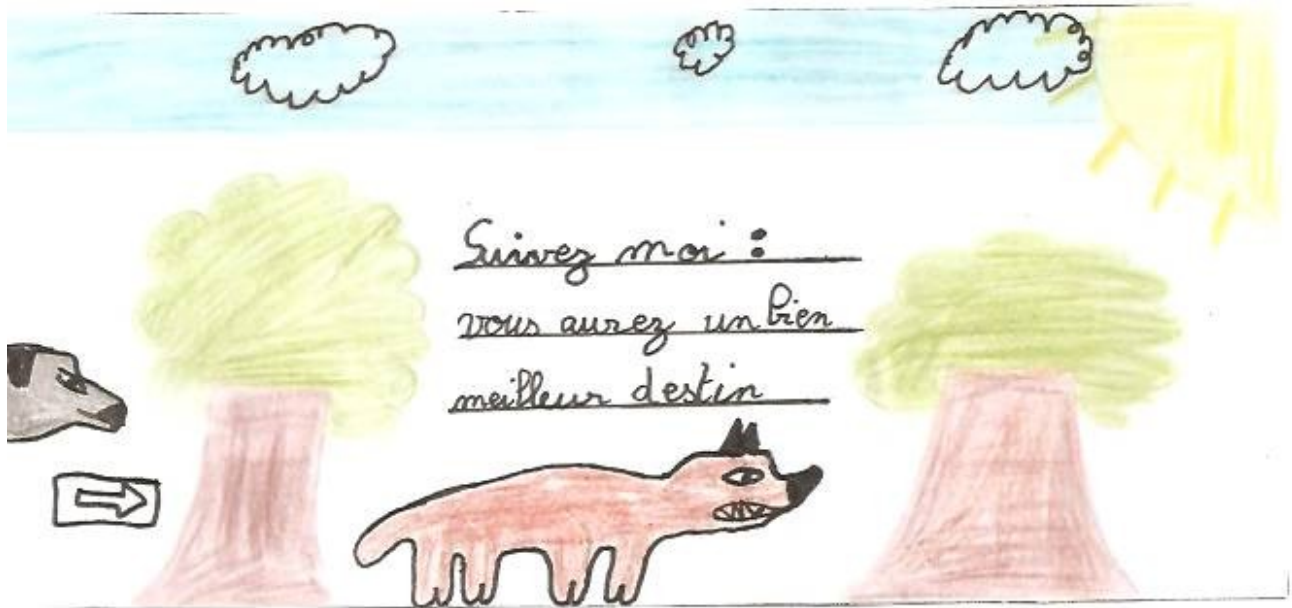 Suivez moi :
vous aurez un bien
meilleur destin